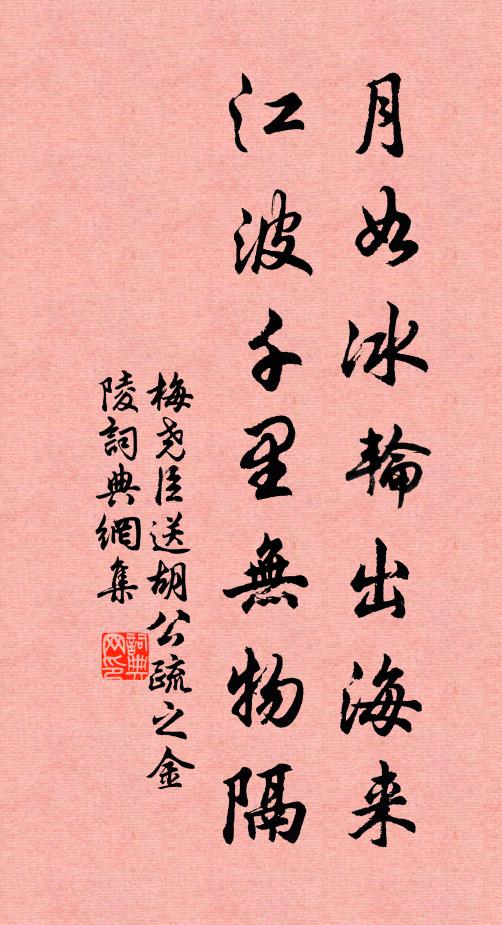 月如冰輪出海来
江波千里無物隔
梅尧臣送胡公疏之金
陵詞典網集
詞典
网印